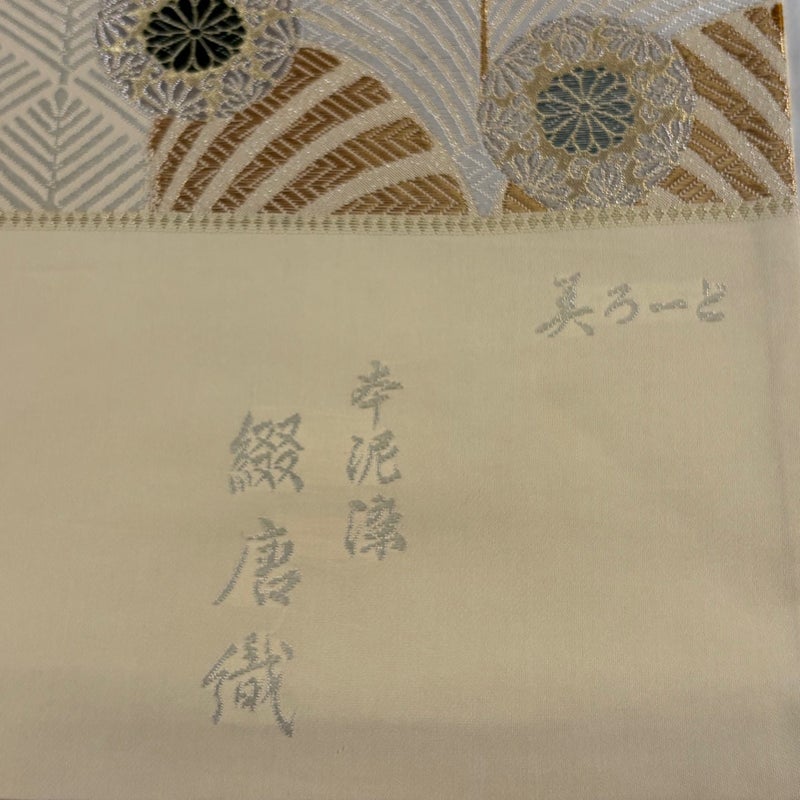 美ろーど
本泥染
綴唐織